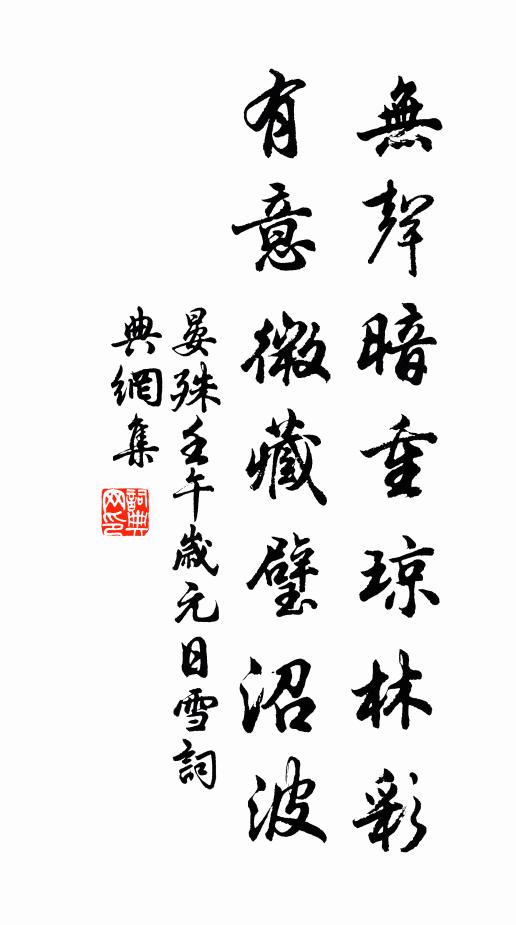 無聲暗重琼林彩
有意微藏璧沼波
晏殊壬午歲元日雪詞
典網集
詞典网印